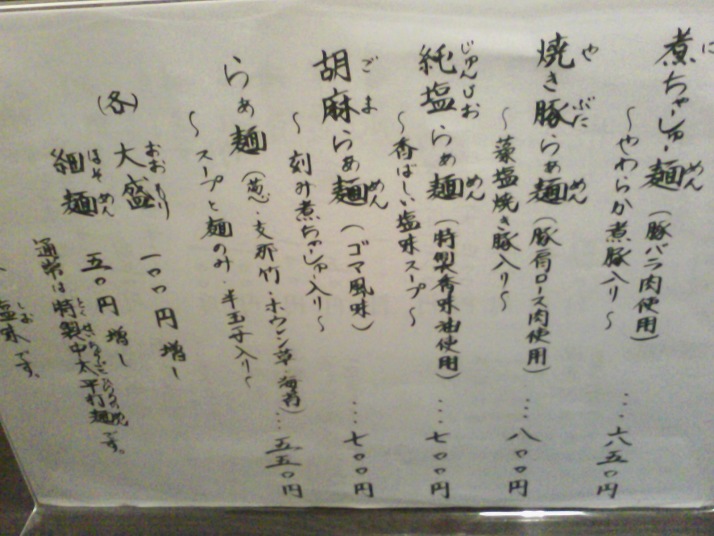 煮ちゃしゅー麺(豚バラ肉使用)
～やわらか煮豚入り～ … 八五〇円
焼き豚らぁ麺(豚肩ロース肉使用)
～藻塩焼き豚入り～ … 八〇〇円
純塩らぁ麺(特製香味油使用)
～香ばしい塩味スープ～ … 七〇〇円
胡麻らぁ麺(ゴマ風味)
～刻み煮ちゃしゅ入り～ … 七〇〇円
らぁ麺(葱・支那竹・ホウレン草・海苔)
～スープと麺のみ・半玉子入り～ … 五五〇円
(各)大盛 一〇〇円増し
細麺 五〇円増し
通常は特製中太平打麺です。
塩味です。